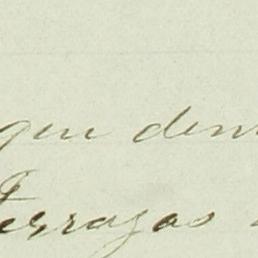 que dem
Terrazas